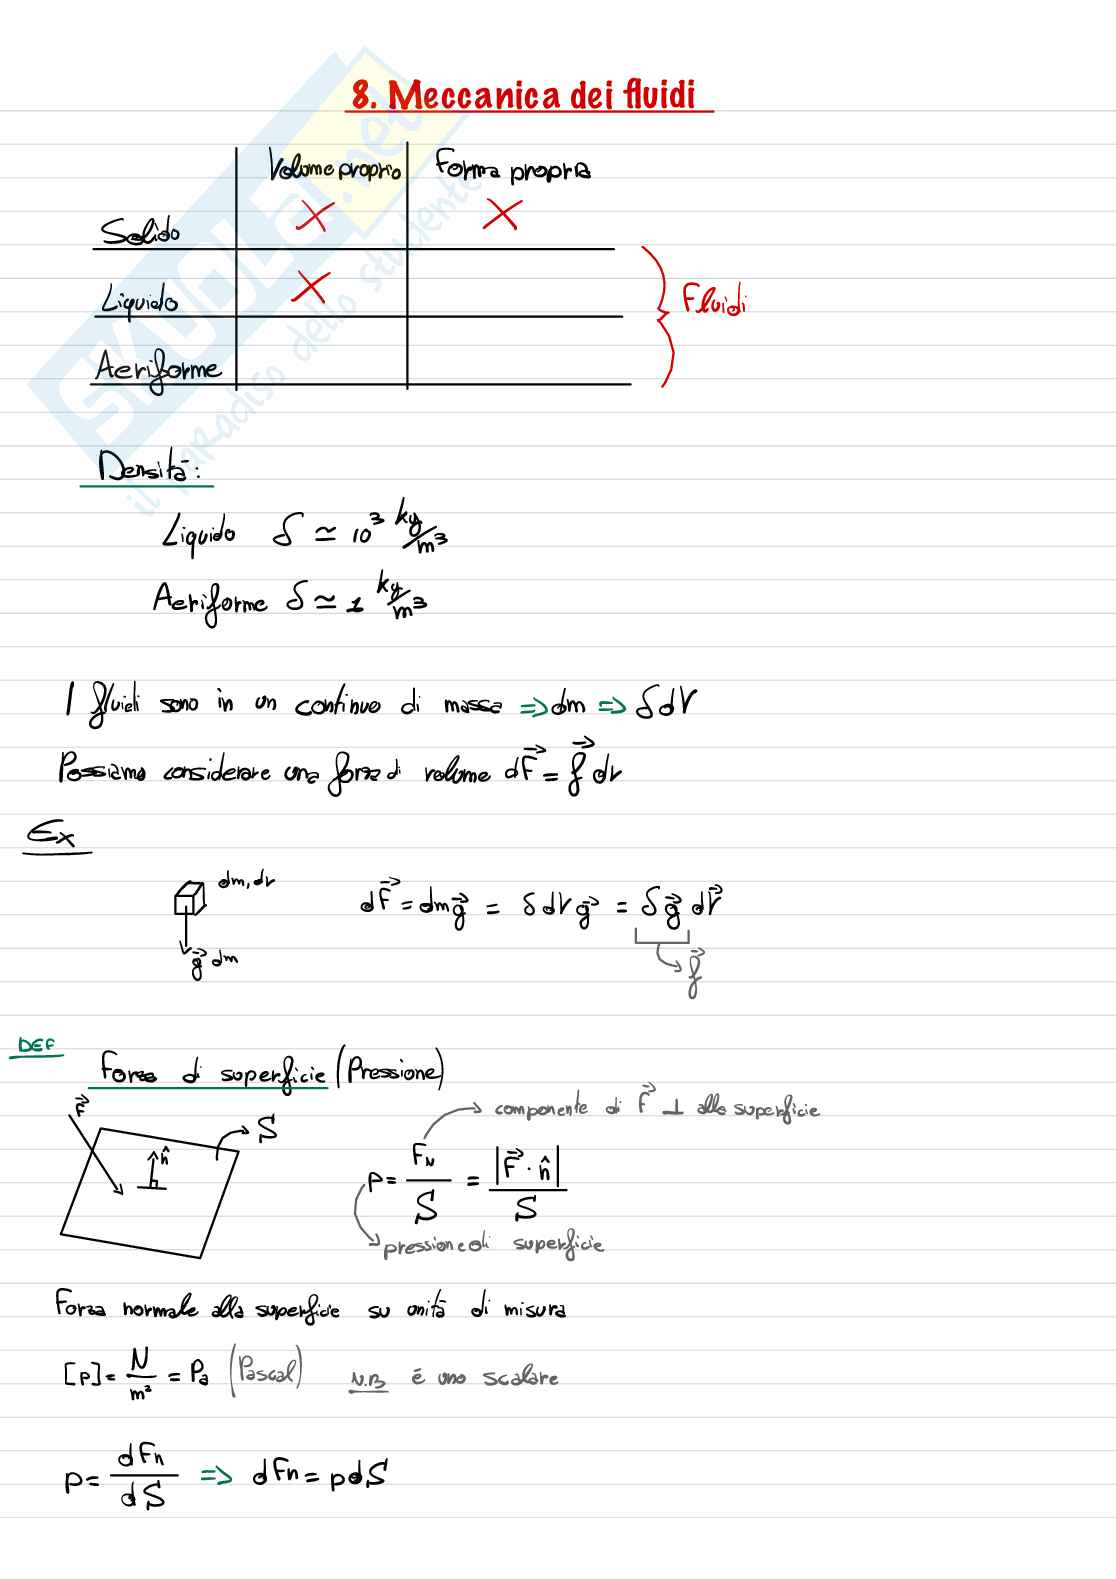 8. Meccanica dei fluidi
Volume proprio Forma propria
Solido X X
Liquido X
Aeriforme
Fluidi
SKUOLA.net
il paradiso dello studente
Densità:
Liquido δ ≃ 10³ kg/m³
Aeriforme δ ≃ 1 kg/m³
I fluidi sono in un continuo di massa => dm => δdV
Possiamo considerare una forza di volume dF⃗ = f⃗ dv
Ex
dm, dv
g⃗ dm
dF⃗ = dm g⃗ = δ dV g⃗ = δ g⃗ dV⃗
f⃗
DEF
Forza di superficie (Pressione)
F⃗
n̂
S
componente di F⃗ ⊥ alla superficie
p = F_N / S = |F⃗ · n̂| / S
pressione di superficie
Forza normale alla superficie su unità di misura
[p] = N/m² = Pa (Pascal) N.B é uno scalare
p = dFn / dS => dFn = pdS